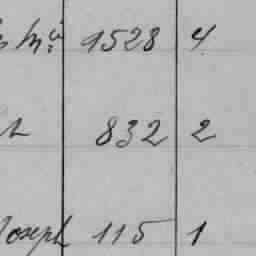 Mª 1528 4
832 2
Joseph 115 1